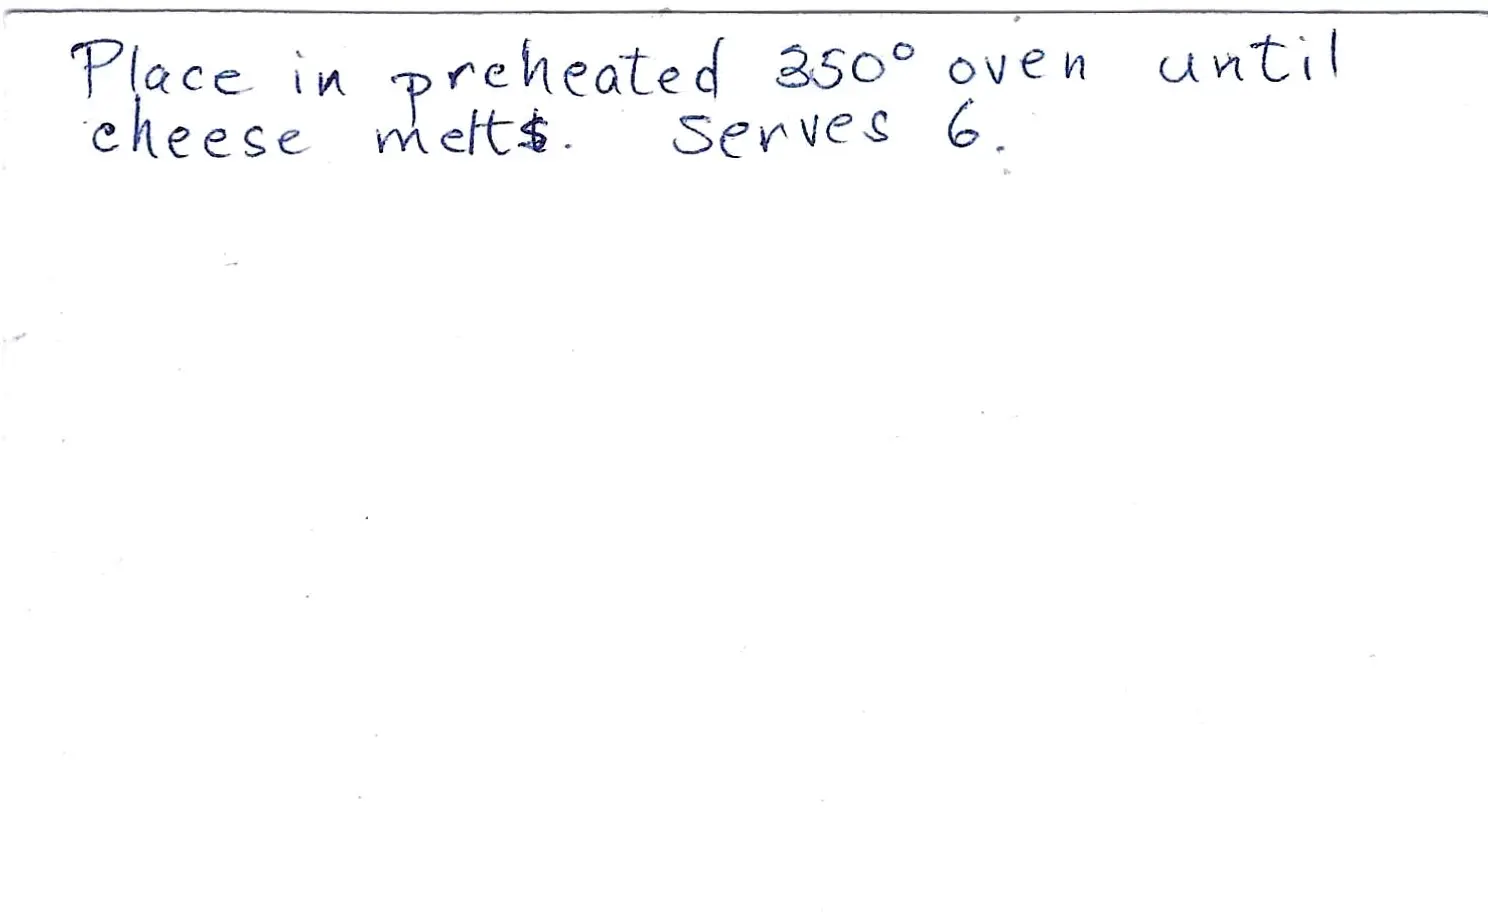 Place in preheated 350° oven until
cheese melts. Serves 6.